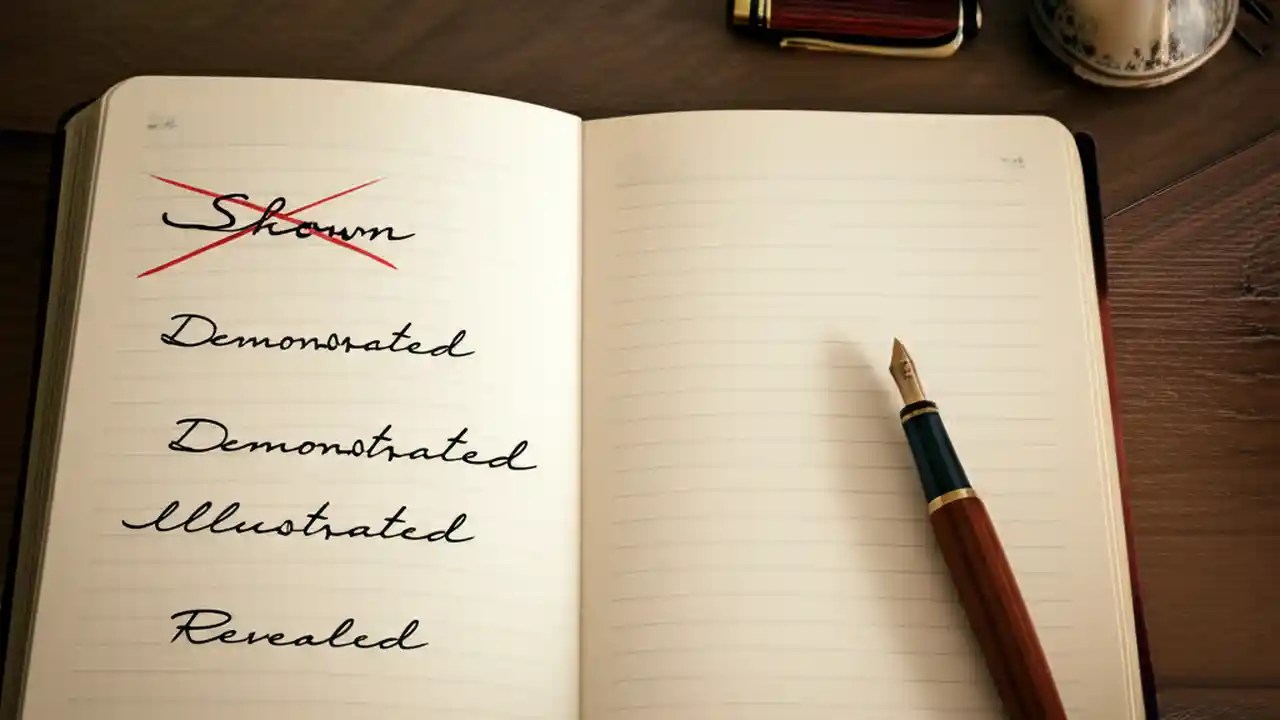 Shown
Demonsrated
Demonstrated
Illustrated
Revealed